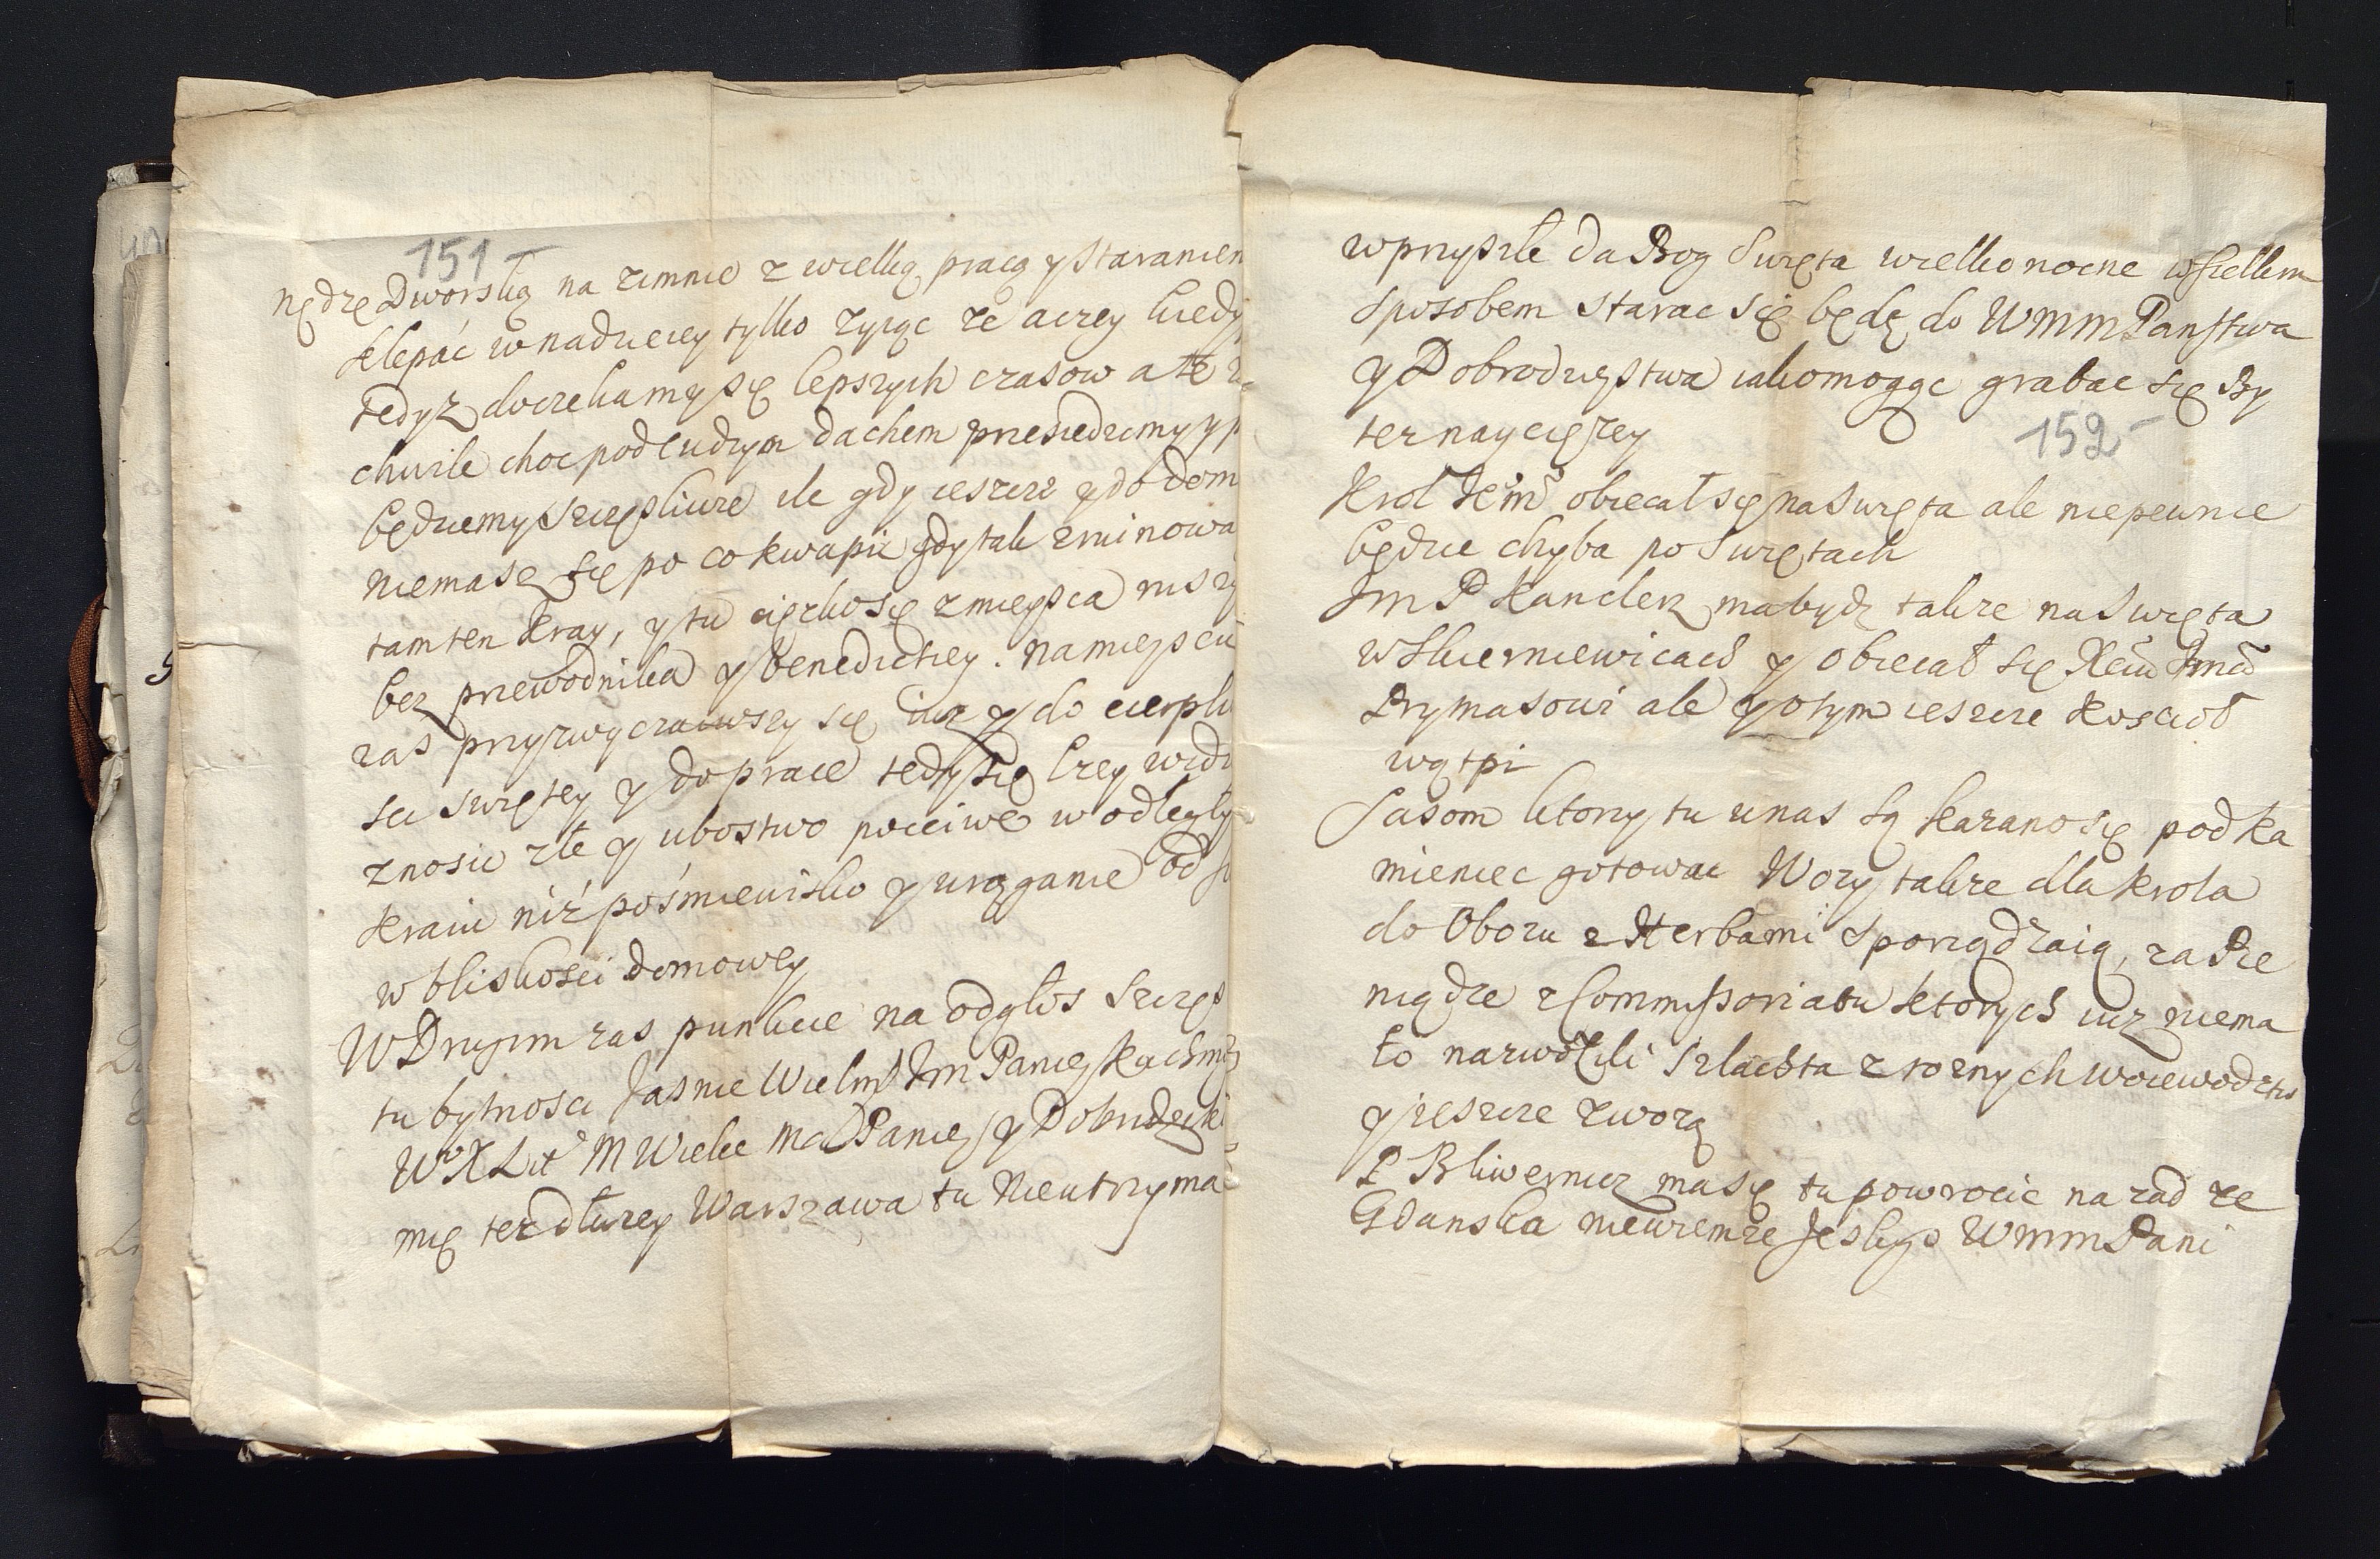 151 -
nędzę Dworską na zimnie z wielką pracą y staraniem
klepáć w nadzieiey tylko zyiąc że aczey kiedy
tedyz doczekamy się lepszych czasow a tę
chwile choc pod cudzym dachem przesiedzimy y
będziemy szczęsliwre ile gdy ieszcze y do dom
niemasz się po co kwapić gdy tak zruinowa
tamten Kray, y tu cięzko się z mieysca rusz
bez przewodnika y benedictiey. na mieyscu
zas przyzwyczaiwszy się iuz y do cierpli
sci swiętey y do prace tedy się lzey
znosic złe y ubostwo pocciwe w odległy
kraiu niż pośmiewisko y urąganie od
w bliskosci domowey
W Drugim zas punkcie na odgłos szczęs
tu bytnosci Jasnie Wielm Im Paniey Kachm
W X Lit M Wielce Mci Paniey y Dobrodzeiki
mię tez dłuzey Warszawa tu Nieutrzyma
w przyszłe da Bog Swięta wielkonocne wszelkim
sposobem starac się będę do WMM Panstwa
y Dobrodzieystwa iako mogąc grabac się By
ter naycięzey
152 -
Krol Je'm obiecał się na Swięta ale niepewnie
będzie chyba po Swiętach
Im P Kanclerz ma bydz takze na Swięta
w Skierniewicach y obiecał się Xciu Jmci
Prymasowi ale y o tym ieszcze Kosciol
wątpi
Sasom ktorzy tu u nas są kazano się pod Ka
mieniec gotowac Wozy takze dla krola
do Obozu z Herbami sporządzaią, za Pie
niądze z Commissoriatu ktorych iuz niema
ło nazwozili Szlachta z roznych woiewodztw
y jeszcze zwozą
P Bliwernicz ma się tu powrocic na zad ze
Gdanska niewiem ze Jesliys WMM Pani